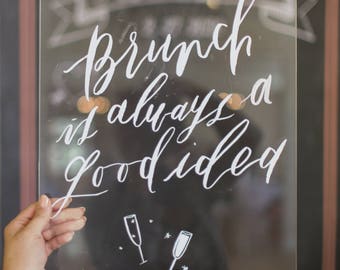 Brunch
is always a
good idea